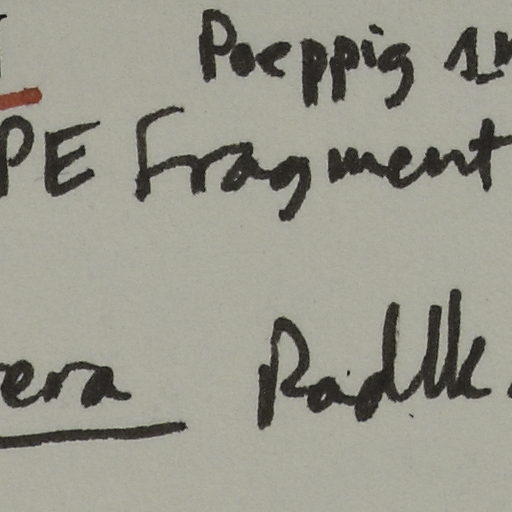 Poeppig
PE Fragment
era Radlk.